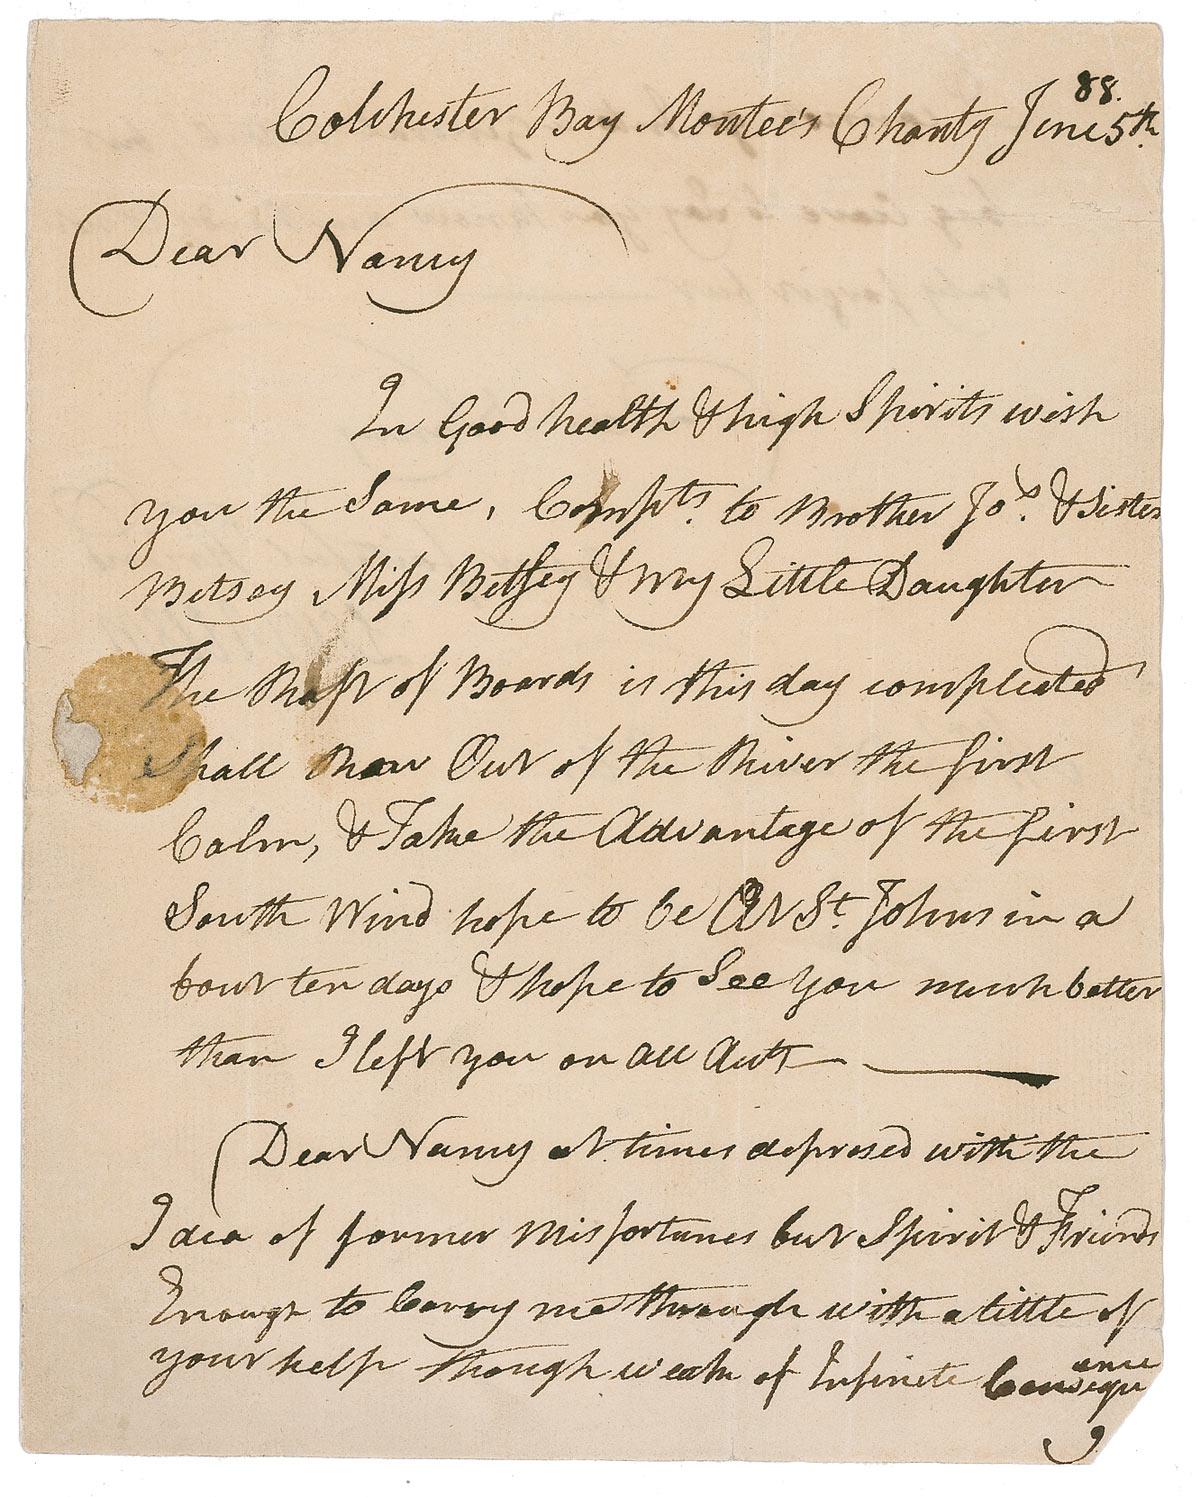 Colchester Bay Montee's Chanty June 5th. 88.
Dear Nancy
In Good health & high Spirits wish
you the Same, Compts. to Brother Jos. & Sister
Betsey Miss Betsey & my Little Daughter
The Raft of Boards is this day compleated
Shall Row Out of the River the first
Calm, & Take the Advantage of the first
South Wind hope to be At St. Johns in a
bout ten days & hope to See you much better
than I left you on all Acts
Dear Nancy at times depresed with the
Idea of former Misfortunes but Spirit & Friends
Enough to Carry me through with a little of
your help though weak of Infinite Consequence